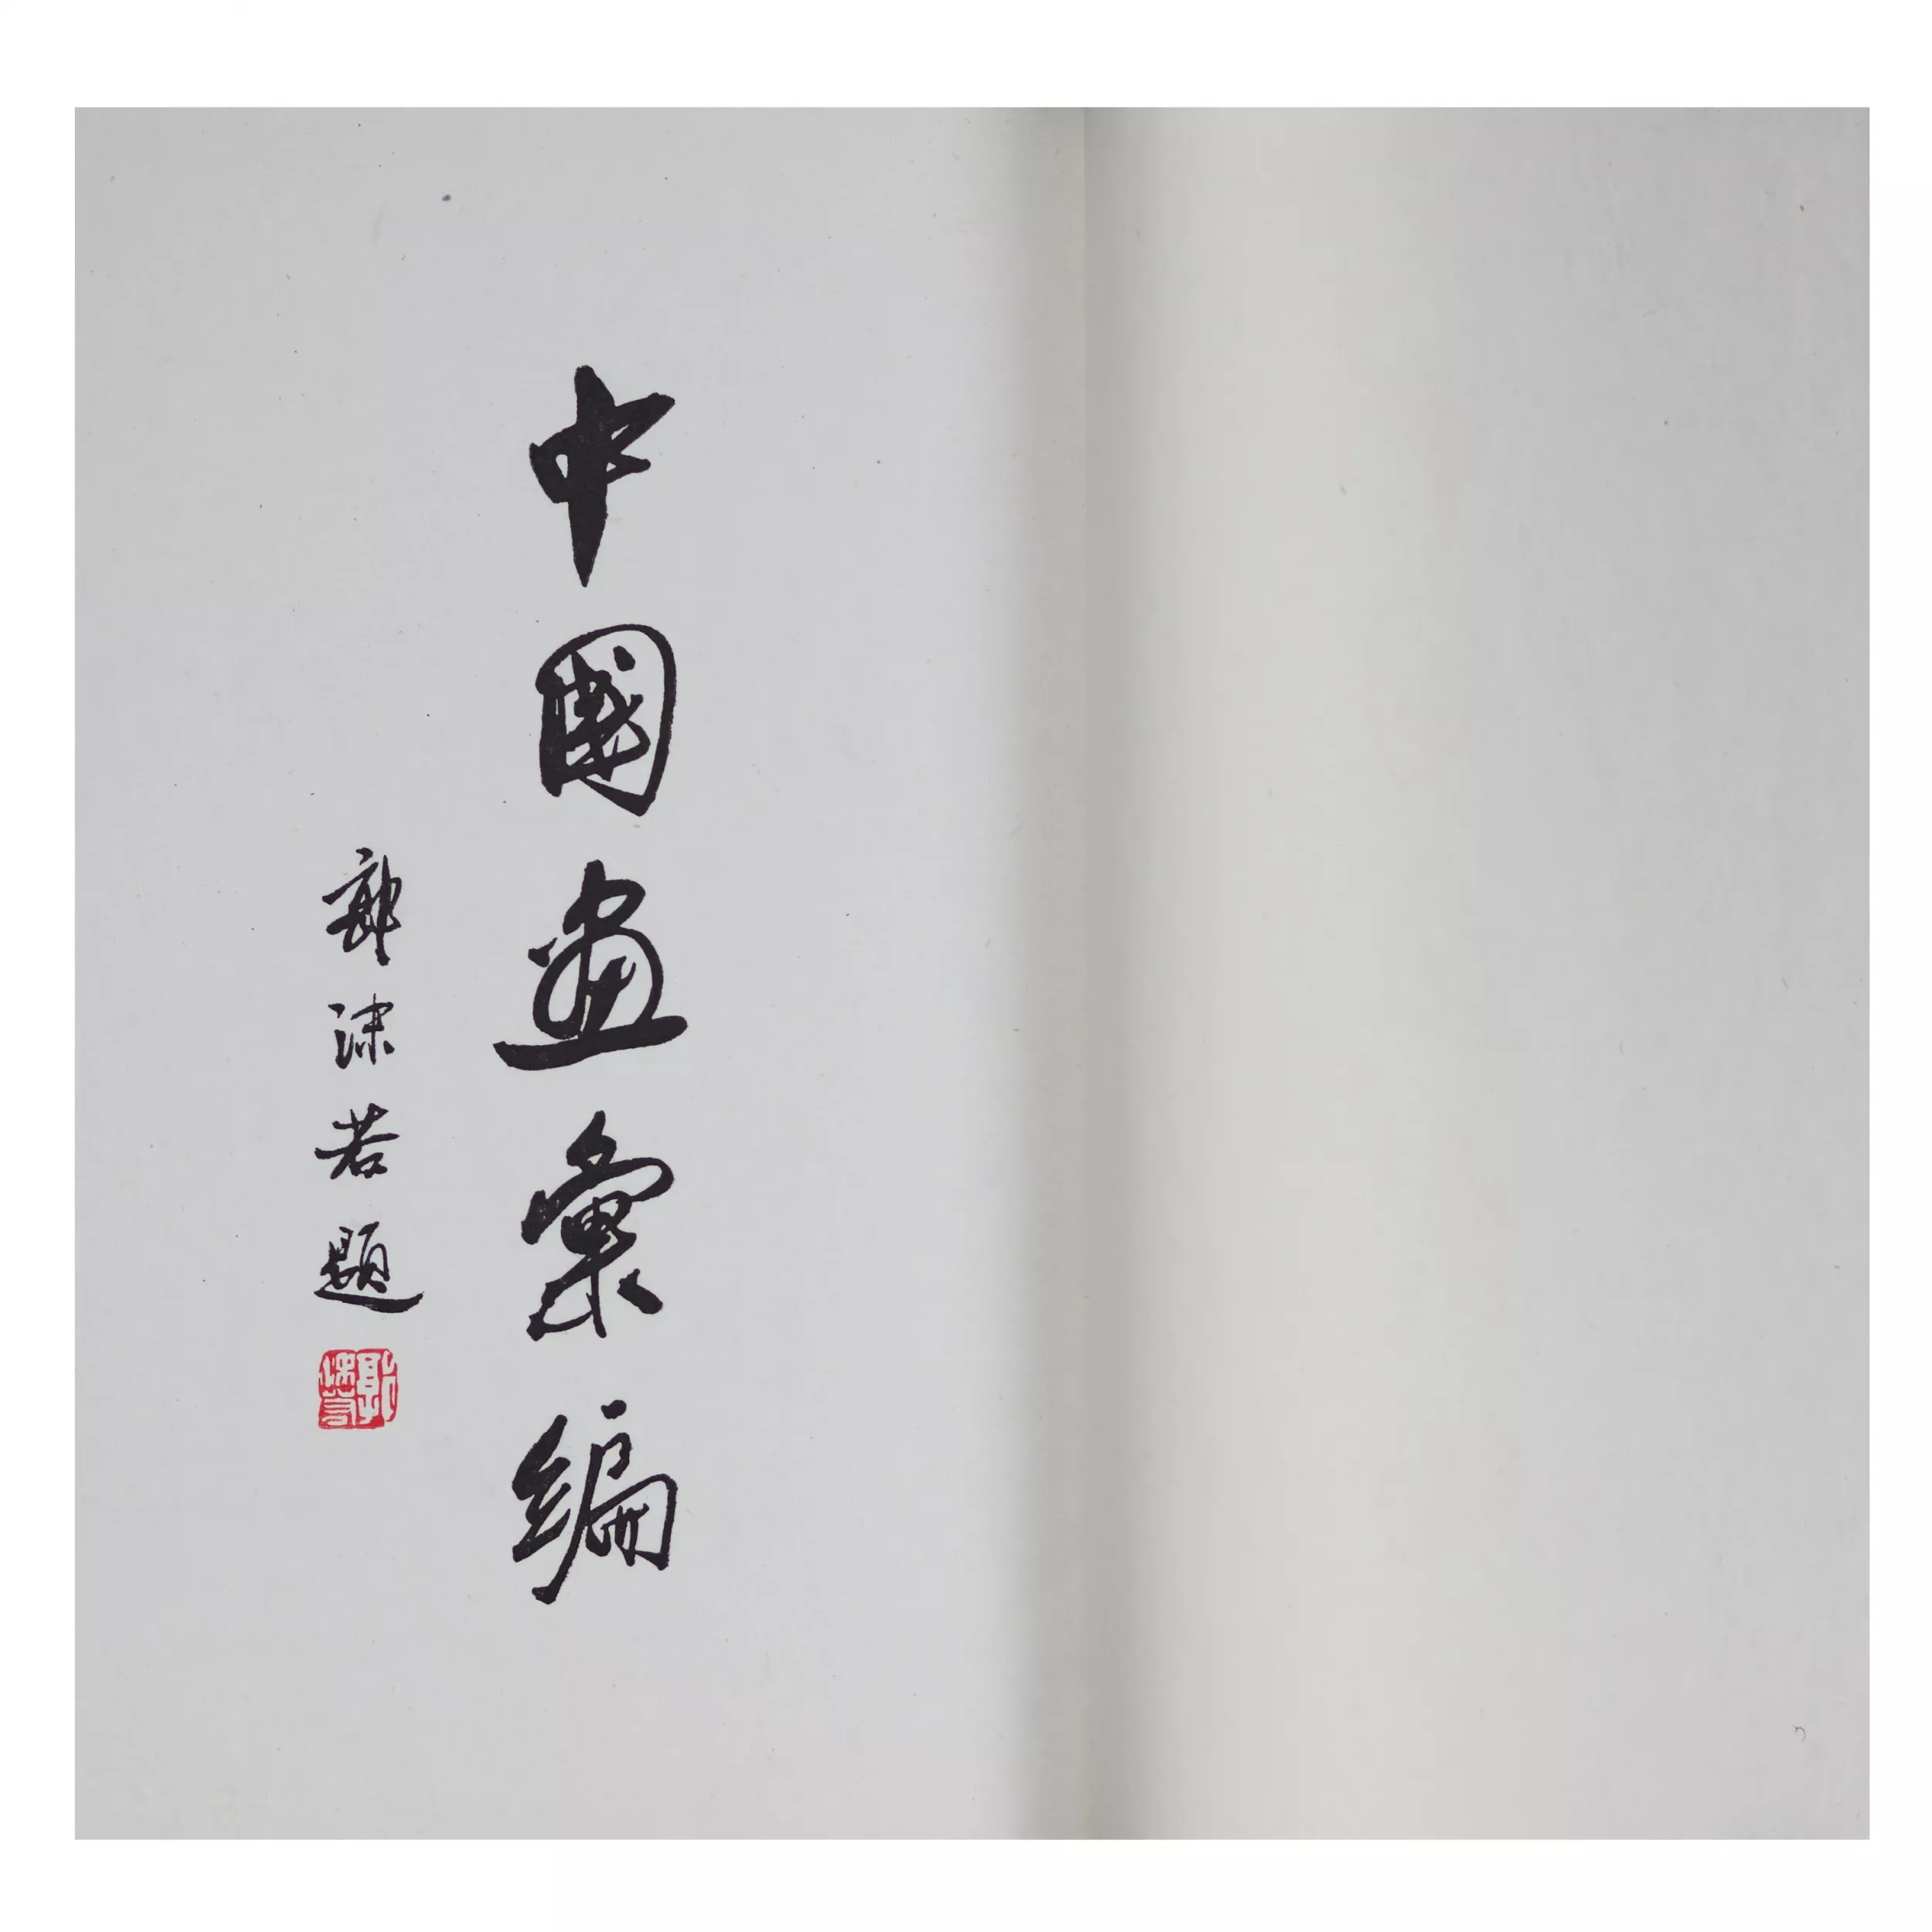 中國畫彙編
郭沫若題
郭沫若